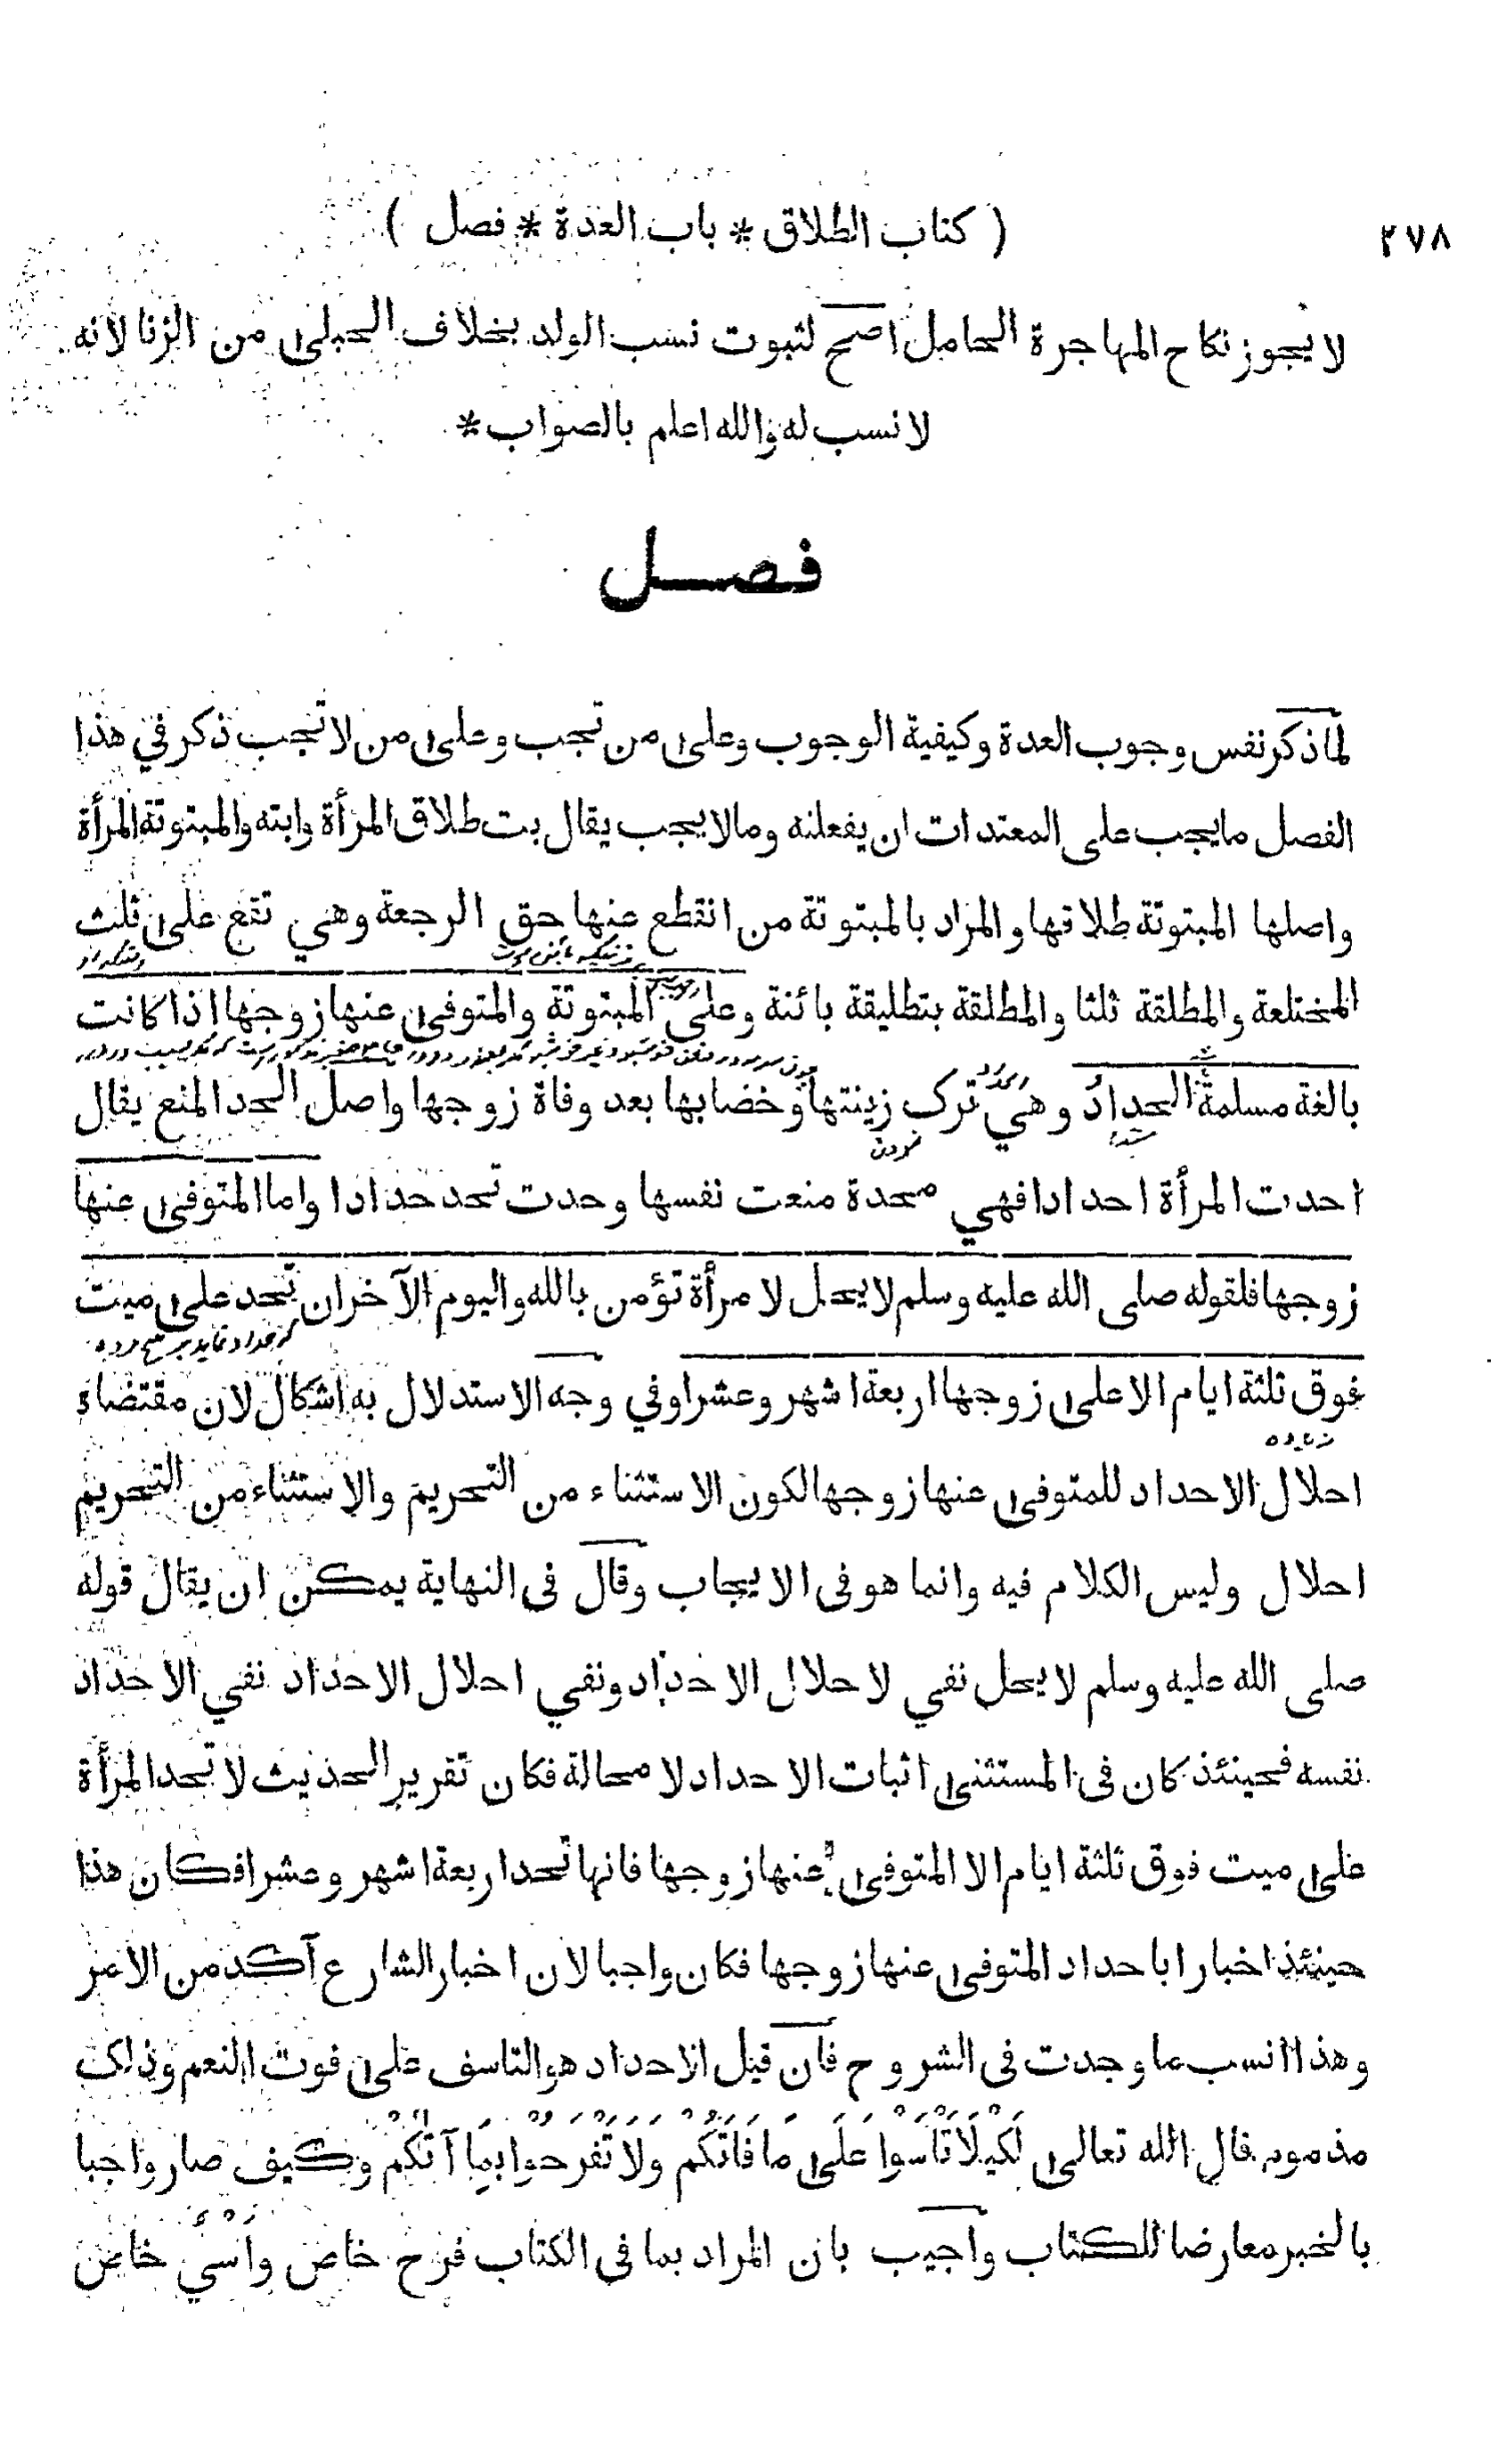 ( كتاب الطلاق * باب العدة * فصل )
٢٧٨
لا يجوز نكاح المهاجرة الحامل اصح لثبوت نسب الولد بخلاف الحبلى من الزنا لانه
لا نسب له والله اعلم بالصواب *
فصل
لما ذكر نفس وجوب العدة وكيفية الوجوب وعلى من تجب وعلى من لا تجب ذكر في هذا
الفصل ما يجب على المعتدات ان يفعلنه وما لا يجب يقال بت طلاق المرأة وابته والمبتوتة المرأة
واصلها المبتوتة طلاقها والمراد بالمبتوتة من انقطع عنها حق الرجعة وهي تقع على ثلث
المختلعة والمطلقة ثلثا والمطلقة بتطليقة بائنة وعلى المبتوتة والمتوفى عنها زوجها اذا كانت
بالغة مسلمة الحداد وهي ترك زينتها وخضابها بعد وفاة زوجها واصل الحد المنع يقال
احدت المرأة احدادا فهي محدة منعت نفسها وحدت تحد حدادا واما المتوفى عنها
زوجها فلقوله صلى الله عليه وسلم لا يحل لامرأة تؤمن بالله واليوم الآخر ان تحد على ميت
فوق ثلثة ايام الا على زوجها اربعة اشهر وعشرا وفي وجه الاستدلال به اشكال لان مقتضاه
زياده
احلال الاحداد للمتوفى عنها زوجها لكون الاستثناء من التحريم والاستثناء من التحريم
احلال وليس الكلام فيه وانما هو فى الايجاب وقال فى النهاية يمكن ان يقال قوله
صلى الله عليه وسلم لا يحل نفي لاحلال الاحداد ونفي احلال الاحداد نفي الاحداد
نفسه فحينئذ كان فى المستثنى اثبات الاحداد لا محالة فكان تقرير الحديث لا تحد المرأة
على ميت فوق ثلثة ايام الا المتوفى عنها زوجها فانها تحد اربعة اشهر وعشرا فكان هذا
حينئذ اخبارا باحداد المتوفى عنها زوجها فكان واجبا لان اخبار الشارع آكد من الامر
وهذا انسب ما وجدت فى الشروح فان قيل الاحداد هو التاسف على فوت النعم وذلك
مذموم قال الله تعالى لِكَيْلَا تَأْسَوْا عَلَى مَا فَاتَكُمْ وَلَا تَفْرَحُوا بِمَا آتٰكُمْ وكيف صار واجبا
بالخبر معارضا للكتاب واجيب بان المراد بما فى الكتاب فرح خاص وأسىً خاص